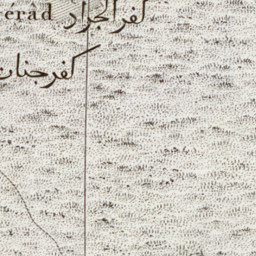 érâd كفر الجراد
كفر جنان